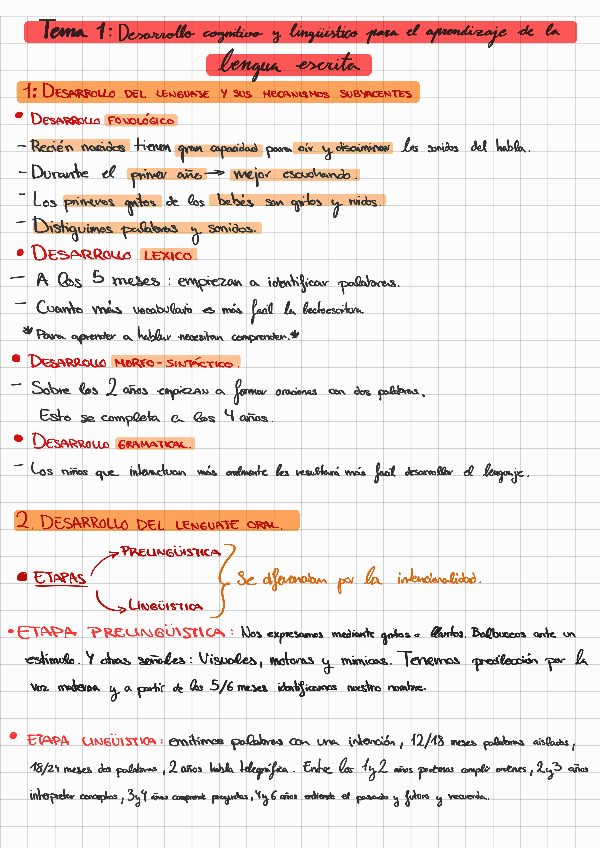 Tema 1: Desarrollo cognitivo y lingüístico para el aprendizaje de la
lengua escrita
1: DESARROLLO DEL LENGUAJE Y SUS MECANISMOS SUBYACENTES
• DESARROLLO FONOLÓGICO
- Recién nacidos tienen gran capacidad para oír y discriminar los sonidos del habla.
- Durante el primer año → mejor escuchando.
- Los primeros gritos de los bebés son gritos y ruidos.
- Distiguimos palabras y sonidos.
• DESARROLLO LEXICO
- A los 5 meses: empiezan a identificar palabras.
- Cuanto más vocabulario es más facil la lectoescritura.
*Para aprender a hablar necesitan comprender.*
• DESARROLLO MORFO-SINTÁCTICO.
- Sobre los 2 años empiezan a formar oraciones con dos palabras.
Esto se completa a los 4 años.
• DESARROLLO GRAMATICAL.
- Los niños que interactuan más oralmente les resultará más facil desarrollar el lenguaje.
2. DESARROLLO DEL LENGUAJE ORAL.
PRELINGÜISTICA
• ETAPAS Se diferencian por la intencionalidad.
LINGÜISTICA
• ETAPA PRELINGÜISTICA: Nos expresamos mediante gritos o llantos. Balbuceos ante un
estimulo. Y otras señales: Visuales, motoras y mimicas. Tenemos predilección por la
voz materna y a partir de los 5/6 meses identificamos nuestro nombre.
• ETAPA LINGÜISTICA: emitimos palabras con una intención, 12/18 meses palabras aisladas,
18/24 meses dos palabras, 2 años habla telegráfica. Entre los 1 y 2 años podemos cumplir ordenes, 2 y 3 años
interpretar conceptos, 3 y 4 años comprende preguntas, 4 y 6 años entiende el pasado y futuro y recuerda.